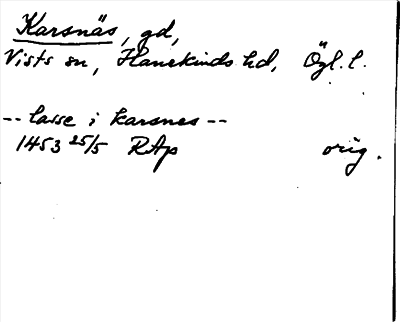 Karsnäs, gd,
Vists sn, Hanekinds hd, Ögl. l.
-- lasse i karsnes --
1453 25/5 RAp orig.